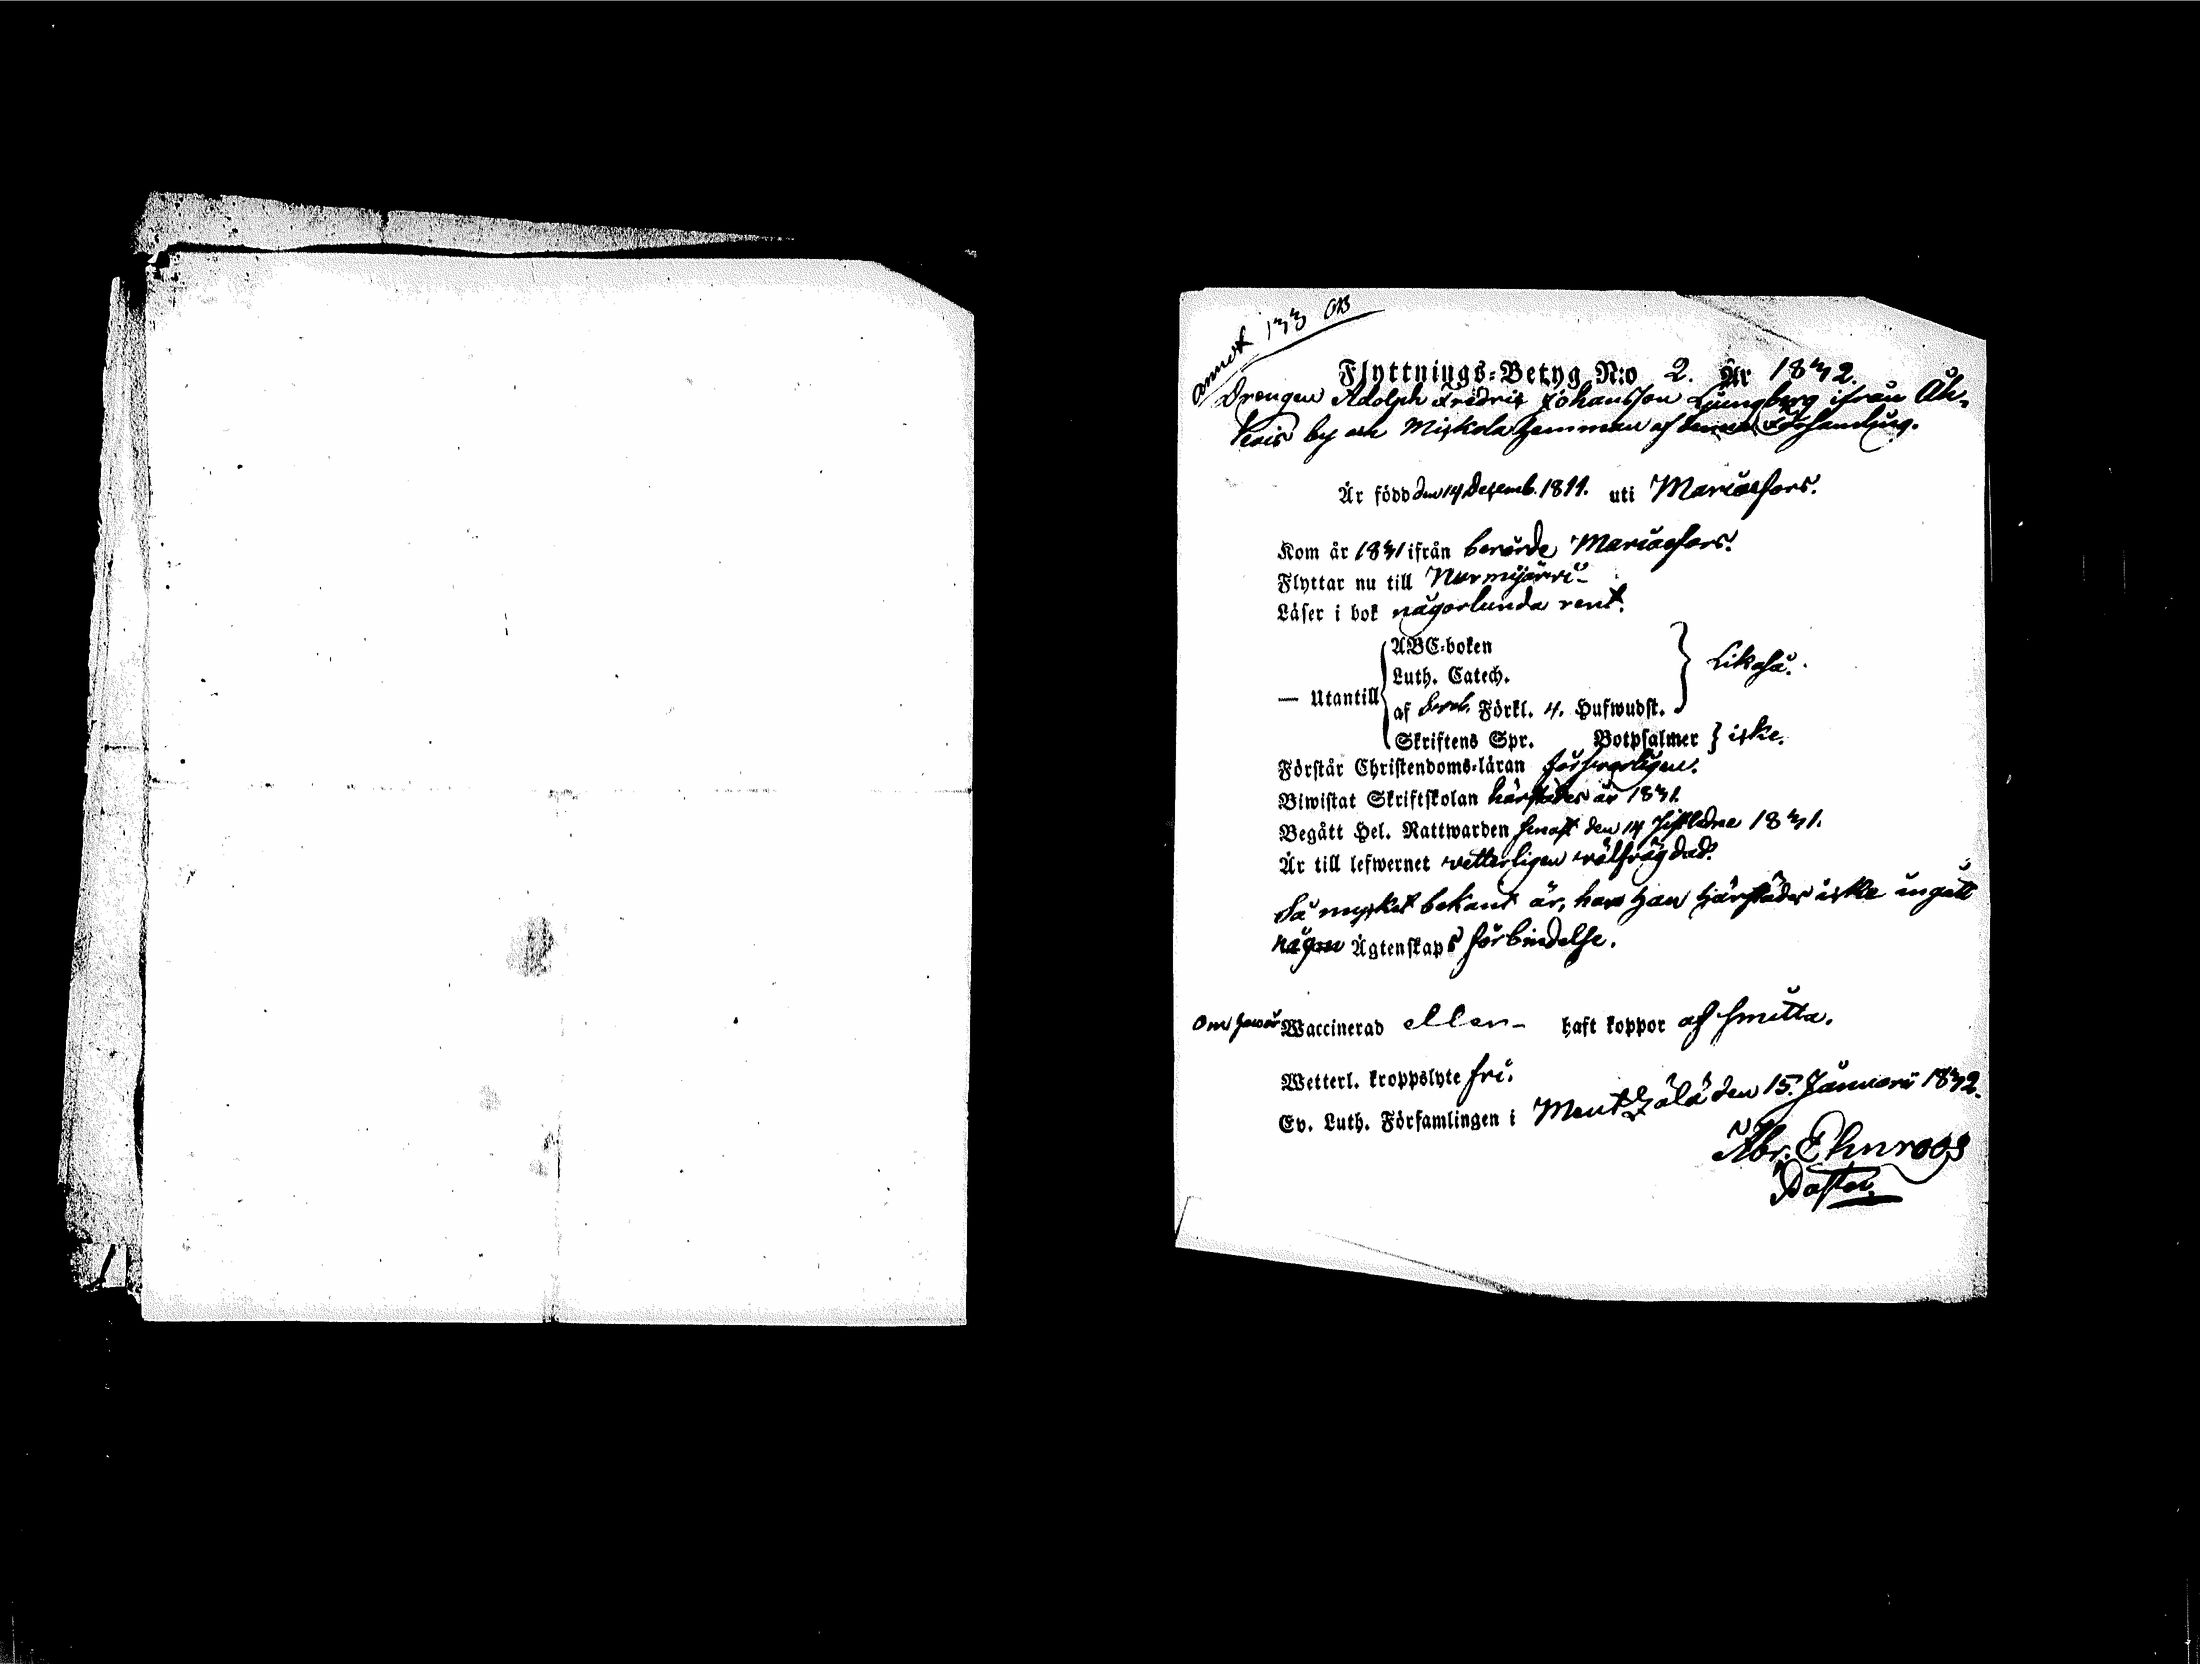 annot 133 OB
Flyttnings-Betyg N:o 2. År 1832.
Drengen Adolph Fredric Johansson Ljungberg ifrån Åh-
kois by och Miskola hemman af denna Församling.
Är född den 14 Decemb. 1811. uti Mariæfors.
Kom år 1831 ifrån berörde Mariæfors.
Flyttar nu till Nurmijärvi-
Läser i bok någorlunda rent.
ABC-boken
Luth. Catech. } Likaså.
— Utantill
af Sveb. Förkl. 4. Hufwudst.
Skriftens Spr. Botpsalmer } icke.
Förstår Christendoms-läran försvarligen.
Biwistat Skriftskolan härstädes år 1831.
Begått Hel. Nattwarden senast den 14 sistledne 1831.
Är till lefwernet vetterligen välfrägdad.
Så mycket bekant är, har han härstädes icke ingått
någon Ägtenskaps förbindelse.
Om han är Waccinerad eller - haft koppor af smitta.
Wetterl. kroppslyte fri.
Ev. Luth. Församlingen i Mentzälä den 15. Januarii 1832.
Abr. Ehnroos
Pastor.